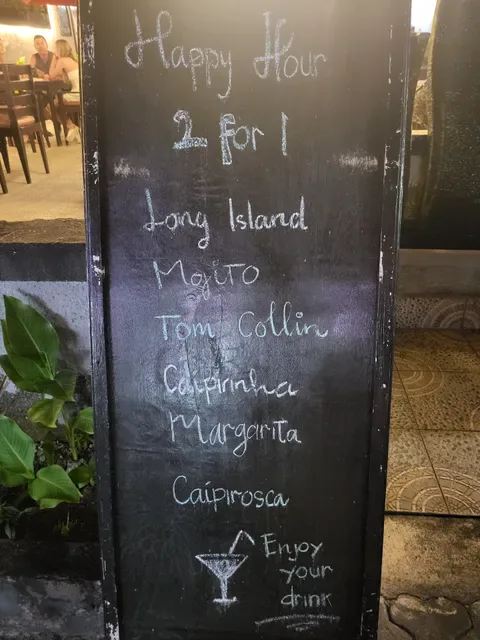 Happy Hour
2 for 1
Long Island
Mojito
Tom Collin
Caipirinha
Margarita
Caipirosca
Enjoy
your
drink